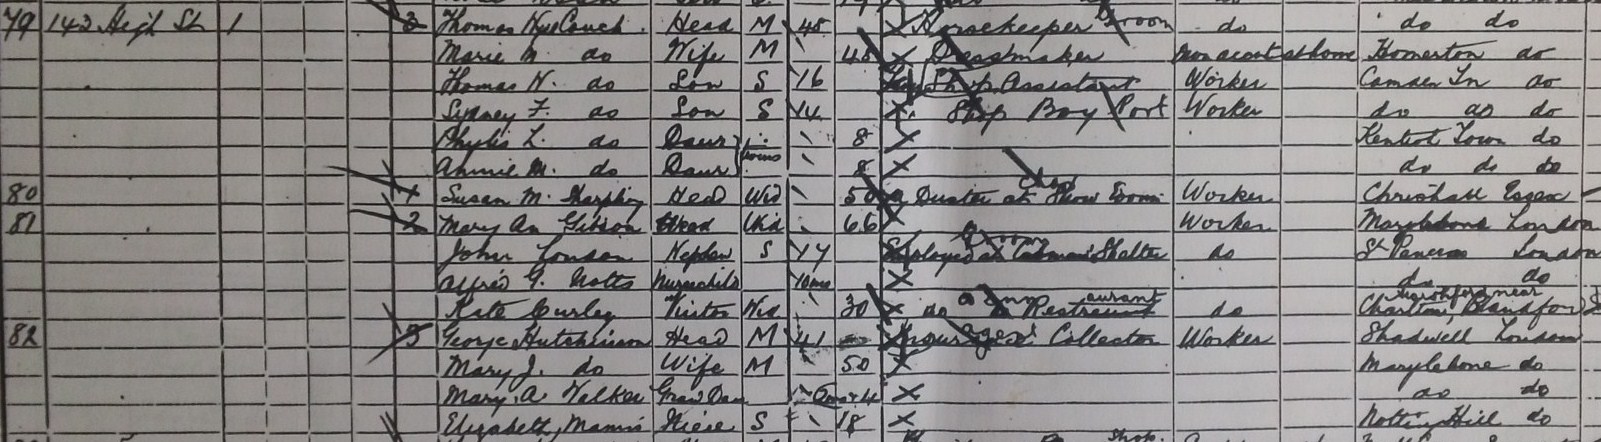 79 142 High St 1 3 Thomas Couch Head M 48 X Horsekeeper Groom do do do
Marie M. do Wife M 48 X Dressmaker own account at home Homerton do
Thomas N. do Son S 16 Shop Assistant Worker Camden Tn do
Sydney F. do Son S 14 X Shop Boy Port Worker do do do
Phylis L. do Daur 8 X Kentish Town do
Annie M. do Daur twins 8 X do do do
80 4 Susan M. Head Wid 50 Duster at Show Room Worker Chrishall Essex
81 2 Mary An Gibson Head Wid 66 X Worker Marylebone London
John London Nephew S 17 Employed at Cabmans Shelter do St Pancras London
Alfred G. Notts Nursechild 10mos X do do
Kate Curley Visitor Wid 30 X do a Restraunt do Charlton, Blandford
82 3 George Hutchinson Head M 41 X agent Collector Worker Shadwell London
Mary J. do Wife M 50 X Marylebone do
Mary. A Walker Gran Dau 4 X do do
Elizabeth Niece S 18 X Notting Hill do
Shop.